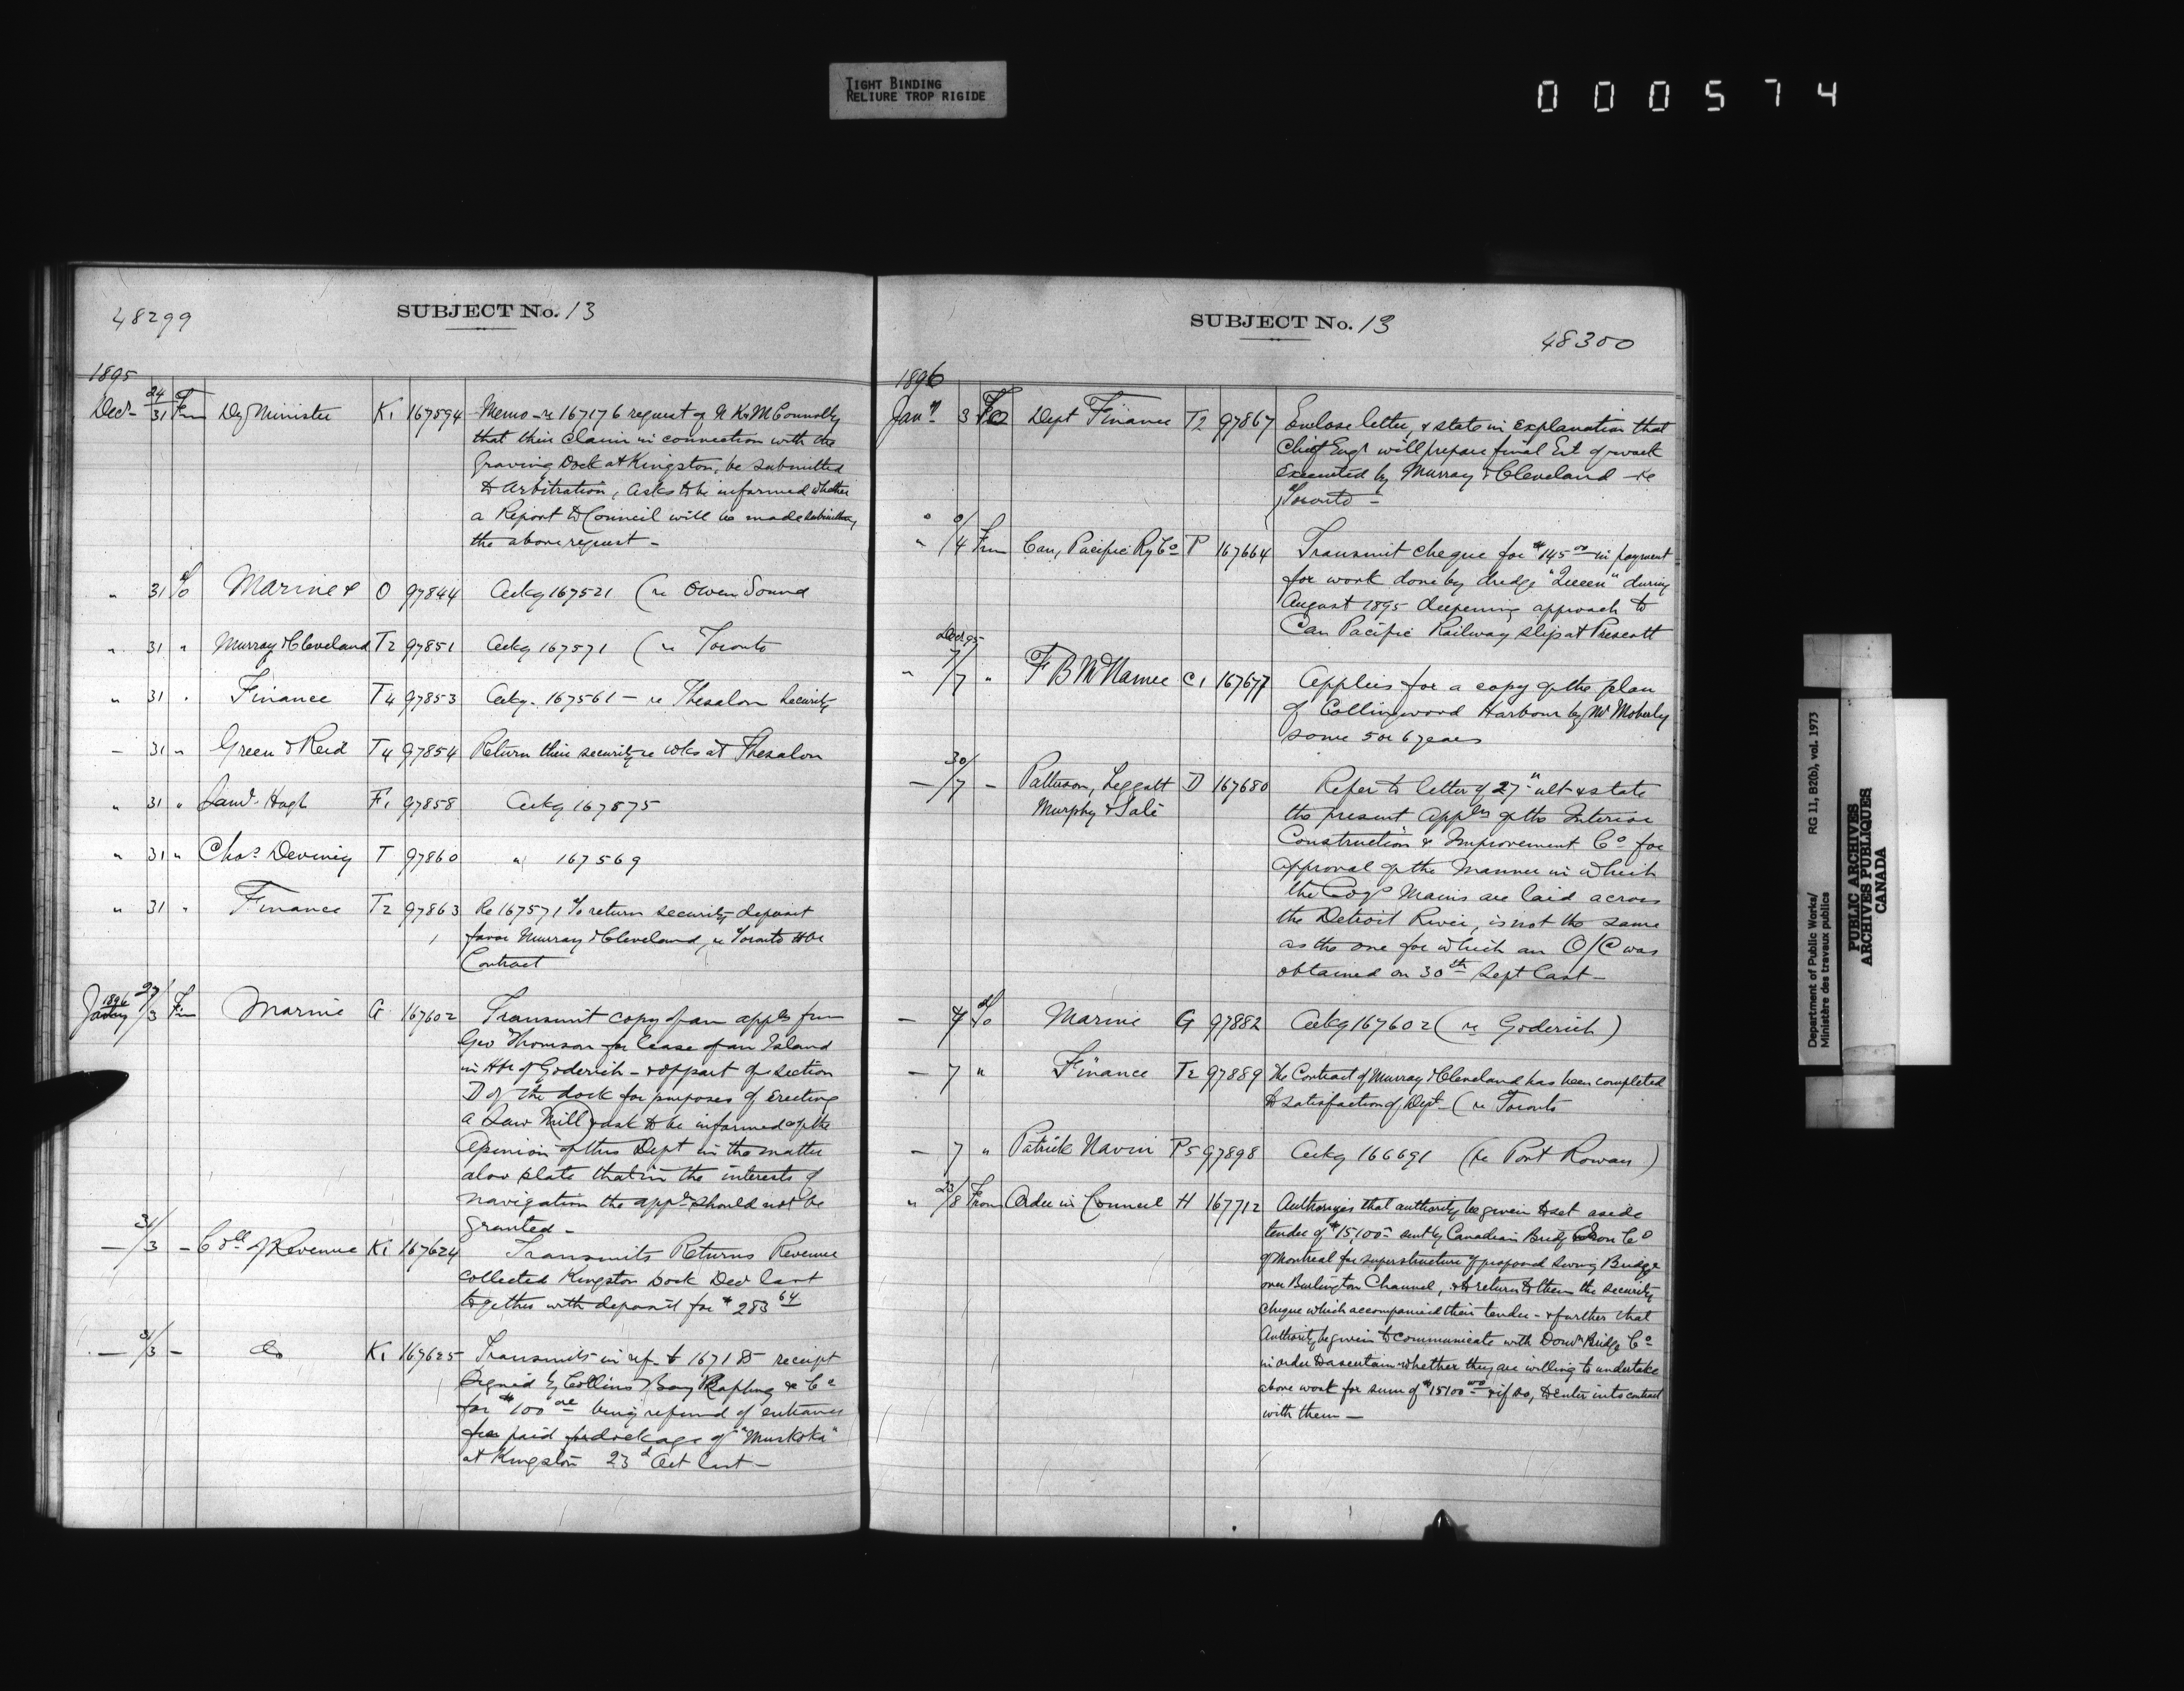 TIGHT BINDING
RELIURE TROP RIGIDE
000574
48299
SUBJECT No. 13
1895
Decr 24/31 Frm Dy Minister K1 167594 Memo - re 167176 request of N K & M Connolly
that their claim in connection with the
Graving Dock at Kingston, be submitted
to Arbitration, asks to be informed whether
a Report to Council will be made submitting
the above request -
" 31 To Marine & O 97844 Ackg 167521 (re Owen Sound
" 31 " Murray & Cleveland T2 97851 Ackg 167571 (re Toronto
" 31 " Finance T4 97853 Ackg. 167561 - re Thesalon Security
- 31 " Green & Reid T4 97854 Return their security re wks at Thesalon
" 31 " Hugh F1 97858 Ackg 167575
" 31 " Chas Deviney T 97860 " 167569
" 31 " Finance T2 97863 Re 167571 To return security deposit
favor Murray & Cleveland, re Toronto Hbr
Contract
1896
27/3 Frm Marine G 167602 Transmit copy of an appln from
Geo Thomson for lease of an Island
in Hbr of Goderich - & opp part of section
D of the dock for purposes of erecting
a Saw Mill & ask to be informed of the
Opinion of this Dept in the matter
also state that in the interests of
navigation the appln should not be
granted -
- 31/3 - Coll of Revenue K1 167624 Transmits Returns Revenue
collected Kingston Dock Decr last
together with deposit for $283 64
- 31/3 - do K1 167625 Transmits in ref. to 167185 receipt
signed by Collins Bay Rafting & Co
for $100 being refund of entrance
fee paid for dockage of "Muskoka"
at Kingston 23d Oct last -
SUBJECT No. 13
48300
1896
Jany 3 To Dept Finance T2 97867 Enclose letter, & state in explanation that
Chief Engr will prepare final Est of work
executed by Murray & Cleveland - re
Toronto -
" /4 Frm Can, Pacific Ry Co P 167664 Transmit cheque for $145 00 in payment
for work done by dredge "Queen" during
August 1895 deepening approach to
Can Pacific Railway slip at Prescott
Decr 95
" 7/7 " F B McNamee C1 167677 Applies for a copy of the plan
of Collingwood Harbour by Mr Moberly
some 5 or 6 years
- 30/7 - Patterson, Leggatt D 167680 Refer to letter of 27" ult & state
Murphy & Sale
the present appln of the Interior
Construction & Improvement Co for
approval of the manner in which
the Coy's Mains are laid across
the Detroit River, is not the same
as the one for which an O/C was
obtained on 30th Sept last -
- 7 To Marine G 97882 Ackg 167602 (re Goderich)
- 7 " Finance T2 97889 The Contract of Murray & Cleveland has been completed
to satisfaction of Dept - (re Toronto
- 7 " Patrick Navin P5 97898 Ackg 166691 (re Port Rowan)
" 23/8 From Order in Council H 167712 Authorizes that authority be given to set aside
tender of $15,100 - sent by Canadian Bridge & Iron Co
of Montreal for superstructure of proposed Swing Bridge
over Burlington Channel, & to return to them the security
cheque which accompanied their tender - & further that
Authority be given to communicate with Domn Bridge Co
in order to ascertain whether they are willing to undertake
above work for sum of $15100 00 & if so, to enter into contract
with them -
Department of Public Works/
Ministère des travaux publics
RG 11, B2(b), vol. 1973
PUBLIC ARCHIVES
ARCHIVES PUBLIQUES
CANADA